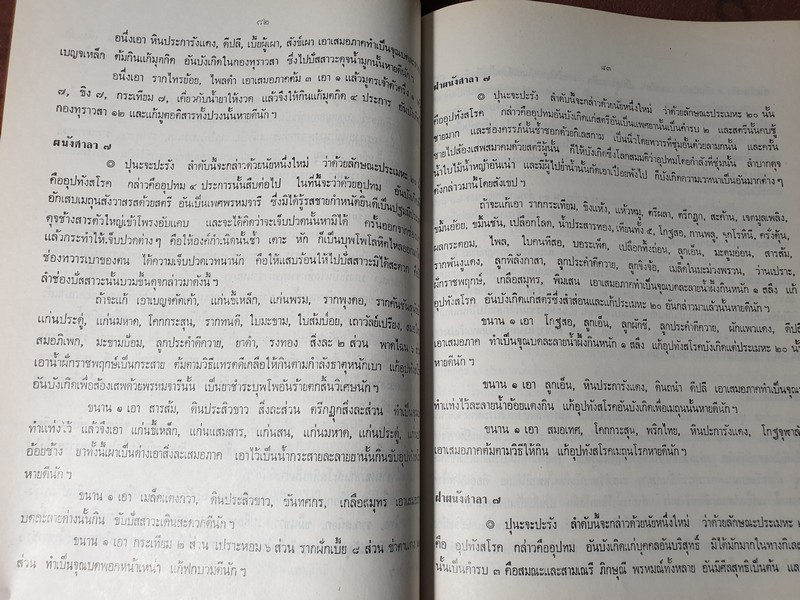 ๔๒
อนึ่งเอา หินประการังแดง, ดีปลี, เบี้ยผู้เผา, สังข์เผา เอาเสมอภาคทำเป็นจุณบด
เบญจเหล็ก ต้มกินแก้มุตกิด อันบังเกิดในกองทุราวสา ซึ่งไปปัสสาวะดุจน้ำมูกนั้นหายดีนักฯ
อนึ่งเอา รากไทรย้อย, ไพลดำ เอาเสมอภาคต้ม ๓ เอา ๑ แล้วมูตรเจ้าตัวครึ่ง
๗, ขิง ๗, กระเทียม ๗, เคี่ยวกับน้ำยาให้งวด แล้วจึงให้กินแก้มุตกิด ๔ ประการ อันบังเกิด
กองทุราวสา ๑๒ และแก้มูตคิสารทั้งปวงนั้นหายดีนักฯ
ผนังศาลา ๗
๏ ปุนะจะปะรัง ลำดับนี้จะกล่าวด้วยนัยหนึ่งใหม่ ว่าด้วยลักษณะประเมหะ ๒๐
คืออุปทังสโรค กล่าวคืออุปทม ๔ ประการนั้นสืบต่อไป ในที่นี้จะว่าด้วยอุปทม อันบังเกิด
อักเสบเมถุนส่งวาสรสด้วยสตรี อันเป็นเพศพรหมจารี ซึ่งมิได้รู้รสชายกำหนัดยินดี
ดุจช้างสารตัวใหญ่เข้าโพรงยับแคบ และจะได้คิดว่าจะเจ็บปวดนั้นหามิได้ ครั้นออกจาก
แล้วกระทำให้เจ็บปวดต่างๆ คือให้องค์กำเนิดนั้นช้ำ เดาะ หัก ก็เป็นบุพโพโลหิตไหลออก
ช่องทวารเบาของตน ได้ความเจ็บปวดเวทนานัก คือให้แสบร้อนให้ไปปัสสาวะมิได้สะดวก
ลำช่องปัสสาวะนั้นบวมขึ้นดุจกล่าวมาดังนี้ฯ
ถ้าจะแก้ เอาเบญจคัดเค้า, แก่นขี้เหล็ก, แก่นพรม, รากพุงดอ,
แก่นประดู่, แก่นมหาด, โคกกระสุน, รากทนดี, ใบมะขาม, ใบส้มป่อย, เถาวัลย์เปรียง,
สมอภิเพก, มะขามป้อม, ลูกประคำดีควาย, ยาดำ, รงทอง สิ่งละ ๒ ส่วน
เอาน้ำผักราชพฤกษ์เป็นกระสาย ต้มตามวิธีเทรดดีเกลือให้กินตามกำลังธาตุหนักเบา
อันบังเกิดเพื่อส้องเสพด้วยพรหมจารีนั้น เป็นยาชำระบุพโพอันร้ายตกสิ้นวิเศษนักฯ
ขนาน ๑ เอา สารส้ม, ดินประสิวขาว สิ่งละส่วน ตรีกฏุกสิ่งละส่วน
ทำแท่งไว้ แล้วจึงเอา แก่นขี้เหล็ก, แก่นแสมสาร, แก่นสน, แก่นมหาด, แก่นประดู่,
อ้อยช้าง ยาทั้งนี้เผาเป็นด่างเอาสิ่งละเสมอภาค เอาไว้เป็นน้ำกระสายละลายยานั้นกินขับ
หายดีนักฯ
ขนาน ๑ เอา เมล็ดแตงกวา, ดินประสิวขาว, ขันทศกร, เกลือสมุทร เอาเสมอ
บดละลายด่างนั้นกิน ขับปัสสาวะเดินสะดวกดีนักฯ
ขนาน ๑ เอา กระเทียม ๒ ส่วน เปราะหอม ๖ ส่วน รากผักเบี้ย ๘ ส่วน
ส่วน ทำเป็นจุณบดพอกหน้าเหน่า แก้ฟกบวมดีนักฯ
๔๓
ฝาผนังศาลา ๗
๏ ปุนะจะปะรัง ลำดับนี้จะกล่าวด้วยนัยหนึ่งใหม่ ว่าด้วยลักษณะประเมหะ ๒๐ นั้น
คืออุปทังสโรค กล่าวคืออุปทมอันบังเกิดแก่สตรีอันเป็นแพศยานั้นเป็นคำรบ ๒ และสตรีนั้นคบชู้
ชายมาก และช่องครรภ์นั้นช้ำชอกด้วยกิเลสกาม เป็นนิ่งโดยทวารที่ซุ่มอั้นด้วยลามกนั้น และครั้น
ชายไปส้องเสพสมาคมด้วยสตรีผู้นั้น ก็ให้บังเกิดซึ่งโลกสมมติว่าอุปทมโดยกำลังที่ซุ่มนั้น ลำบากดุจ
น้ำใบไม้น้ำหญ้าอันเน่า และมีผู้ไปย่ำน้ำนั้นก็ดเอาเปื่อยพังไป ก็บังเกิดความเวทนาเป็นอันมากต่างๆ
ดังกล่าวมานี้โดยสังเขปฯ
ถ้าจะแก้เอา รากกระเทียม, ขิงแห้ง, แห้วหมู, ตรีผลา, ตรีกฏุก, สะค้าน, เจตมูลเพลิง,
ขมิ้นอ้อย, ขมิ้นชัน, เปลือกโลด, น้ำประสารทอง, เทียนทั้ง ๕, โกฐสอ, กานพลู, จุกโรหินี, ครั่งดุ้น,
ผลกระดอม, ไพล, ใบคนทีสอ, บอระเพ็ด, เปลือกทิ้งถ่อน, ลูกเอ็น, มะตูมอ่อน, สารส้ม,
รากพันงูแดง, ลูกพิลังกาสา, ลูกประคำดีควาย, ลูกจิงจ้อ, เมล็ดในมะม่วงพรวน, ว่านเปราะ,
ฝักราชพฤกษ์, เกลือสมุทร, พิมเสน เอาเสมอภาคทำเป็นจุณบดละลายน้ำผึ้งกินหนัก ๑ สลึง แก้
อุปทังสโรค อันบังเกิดแก่สตรีซึ่งสำส่อนและแก้ประเมหะ ๒๐ อันกล่าวมาแล้วนั้นหายดีนักฯ
ขนาน ๑ เอา โกฐสอ, ลูกเอ็น, ลูกผักชี, ลูกประคำดีควาย, ผักแพวแดง, ดีปลี
เอาเสมอภาค ทำเป็นจุณบดละลายน้ำผึ้งกินหนัก ๑ สลึง แก้อุปทังสโรคบังเกิดแต่ประเมหะ ๒๐ นั้น
หายดีนักฯ
ขนาน ๑ เอา ลูกเอ็น, หินประการังแดง, ดินถนำ ดีปลี เอาเสมอภาคทำเป็นจุณ
ทำแท่งไว้ละลายน้ำอ้อยแดงกิน แก้อุปทังสโรคอันบังเกิดเพื่อเมถุนนั้นหายดีนักฯ
ขนาน ๑ เอา สมอเทศ, โคกกระสุน, พริกไทย, หินปะการังแดง, โกฐจุฬาลัม
เอาเสมอภาคต้มตามวิธีให้กิน แก้อุปทังสโรคเมถุนโรคหายดีนักฯ
ฝาผนังศาลา ๗
๏ ปุนะจะปะรัง ลำดับนี้จะกล่าวด้วยนัยหนึ่งใหม่ ว่าด้วยลักษณะประเมหะ
คือ อุปทังสโรค กล่าวคืออุปทม อันบังเกิดแก่บุคคลอันบริสุทธิ์ มิได้มักมากในทางกิเลส
นั้นเป็นคำรบ ๓ คือสมณะและสามเณรี ภิกษุณี พรหมณ์ทั้งหลาย อันมีศีลสุทธิเป็นต้น